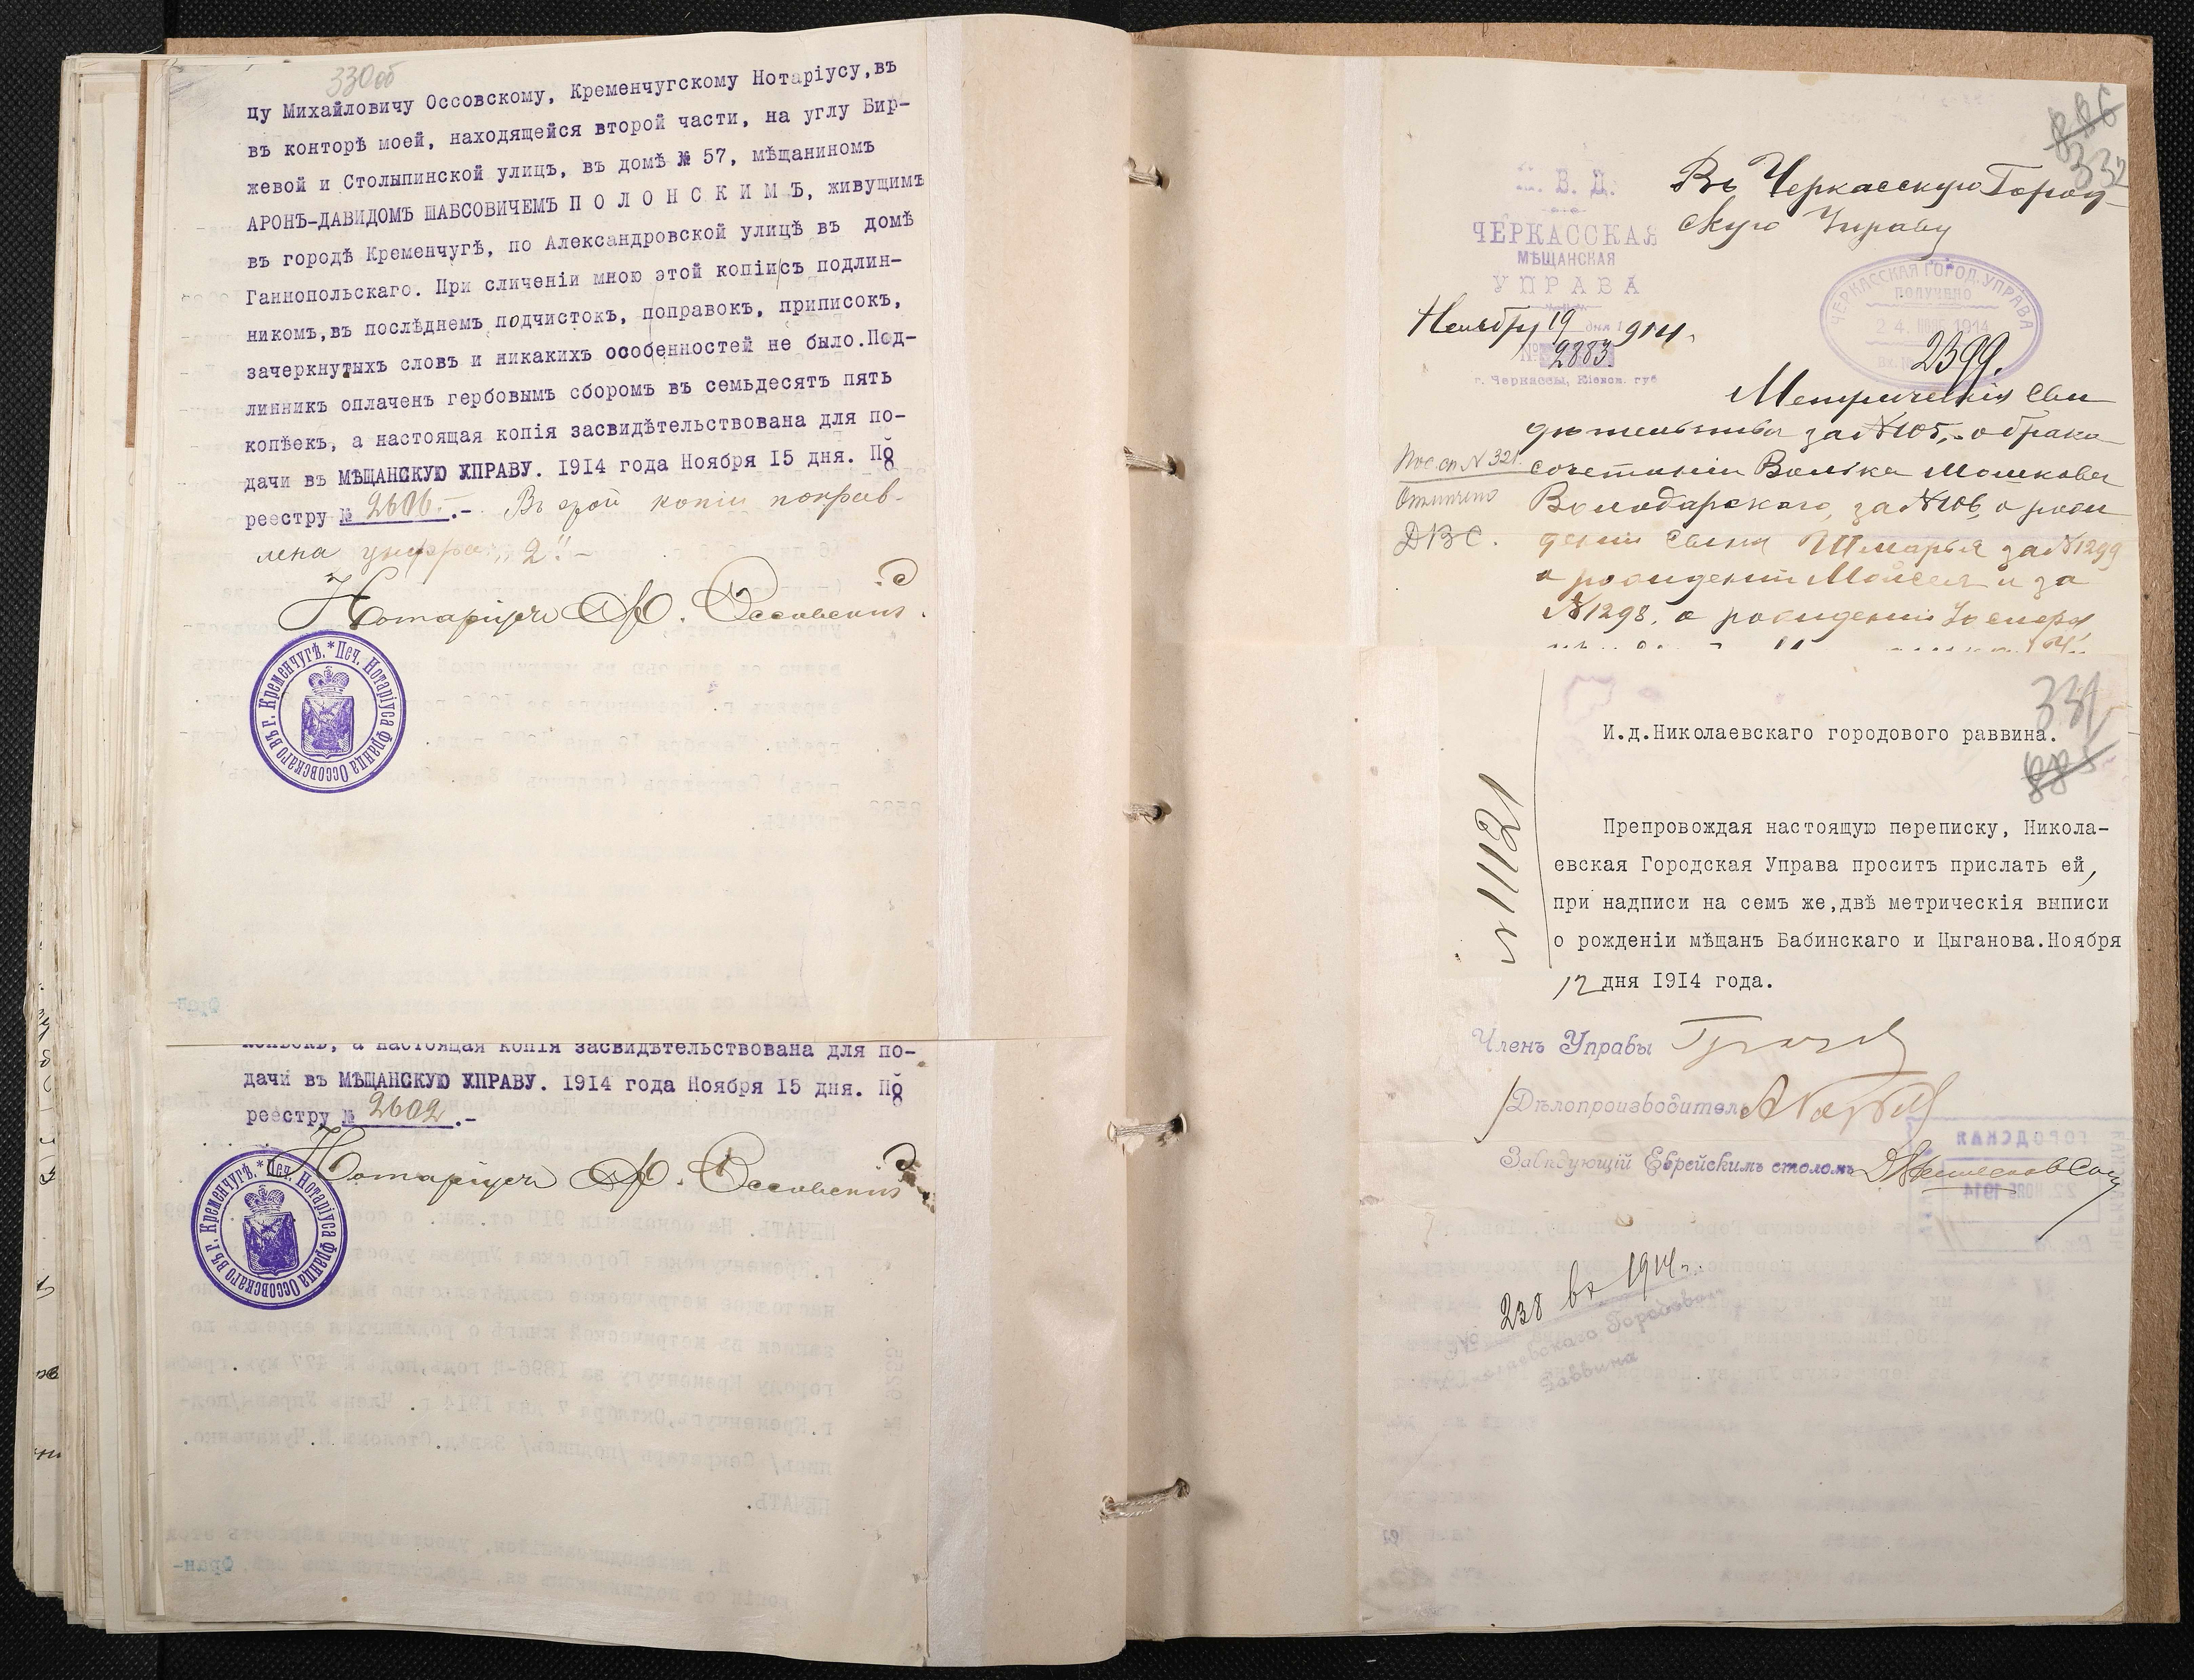 330об
цу Михайловичу Оссовскому, Кременчугскому Нотаріусу,въ
въ конторѣ моей, находящейся второй части, на углу Бир-
жевой и Столыпинской улицъ, въ домѣ № 57, мѣщаниномъ
АРОНЪ-ДАВИДОМЪ ШАБСОВИЧЕМЪ П О Л О Н С К И М Ъ, живущимъ
въ городѣ Кременчугѣ, по Александровской улицѣ въ домѣ
Ганнопольскаго. При сличеніи мною этой копіи съ подлин-
никомъ,въ послѣднемъ подчистокъ, поправокъ, приписокъ,
зачеркнутыхъ словъ и никакихъ особенностей не было.Под-
линникъ оплаченъ гербовымъ сборомъ въ семьдесятъ пять
копѣекъ, а настоящая копія засвидѣтельствована для по-
дачи въ МѢЩАНСКУЮ УПРАВУ. 1914 года Ноября 15 дня. По
реестру № 2606.- Въ этой копіи поправ-
лена цифра „2".-
Нотаріусъ Ф. Оссовскій.
* Печ. Нотаріуса Франца Оссовскаго въ г. Кременчугѣ.
копѣекъ, а настоящая копія засвидѣтельствована для по-
дачи въ МѢЩАНСКУЮ УПРАВУ. 1914 года Ноября 15 дня. По
реестру № 2602.-
Нотаріусъ Ф. Оссовскій
* Печ. Нотаріуса Франца Оссовскаго въ г. Кременчугѣ.
886
332
Въ Черкасскую Город-
скую Управу
М. В. Д.
ЧЕРКАССКАЯ
МѢЩАНСКАЯ
УПРАВА
Ноября 19 дня 1914 г.
№ 2883
г. Черкассы, Кіевск. губ
ЧЕРКАССКАЯ ГОРОД. УПРАВА
ПОЛУЧЕНО
24 НОЯБ 1914
Вх. № 2399.
Метрическія сви
дѣтельства за № 105, о брако
сочетаніи Волька Мошкова
Володарскаго, за № 106, о рож
деніи сына Шмарья за № 1299
о рожденіи Мойсея и за
№ 1298. о рожденіи
Пос. сп. № 321.
Отмѣчено
331
885
И.д.Николаевскаго городового раввина.
№ 11121
Препровождая настоящую переписку, Никола-
евская Городская Управа проситъ прислать ей,
при надписи на семъ же,двѣ метрическія выписи
о рожденіи мѣщанъ Бабинскаго и Цыганова.Ноября
12 дня 1914 года.
Членъ Управы
Дѣлопроизводитель
Завѣдующій Еврейскимъ столомъ
238 вх 1914 г.
Николаевскаго Городового
Раввина